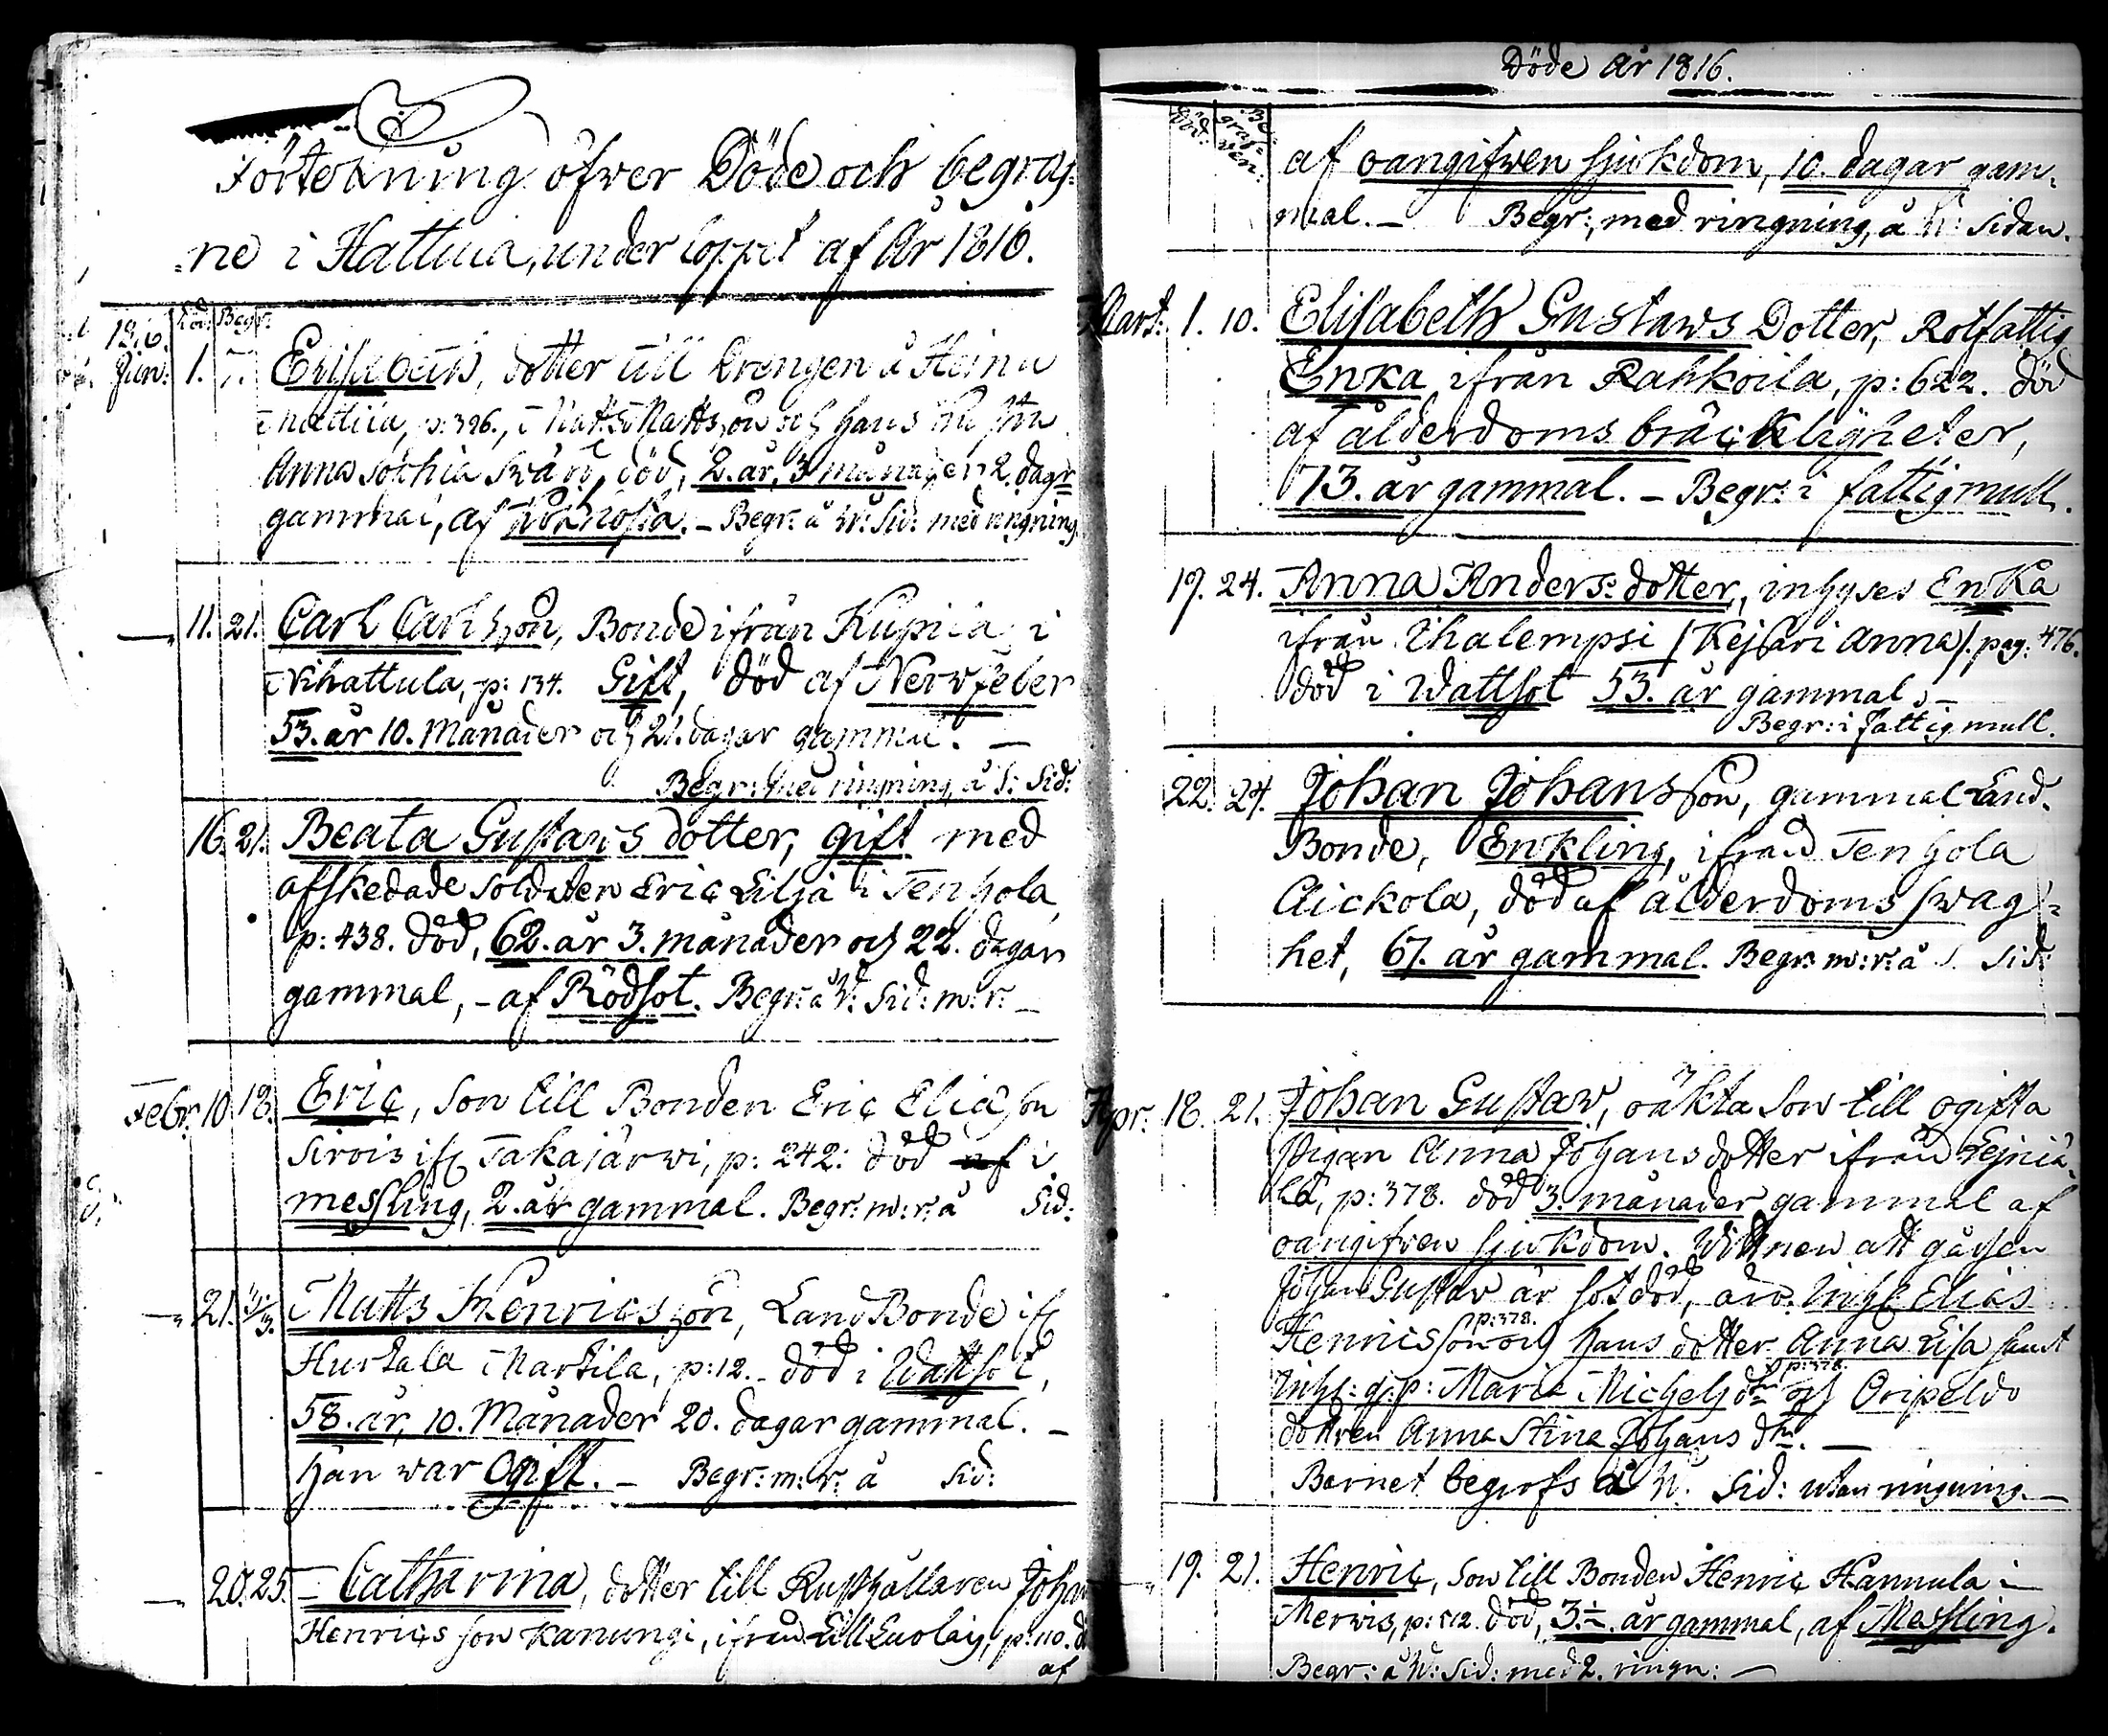 Förteckning öfver Döde och begraf-
ne i Hattula, under loppet af År 1816.
1816. Död: Begr:
Jan: 1. 7. Elisabeth, dotter till Drengen å Heinu
Mattila, p: 396., Matts Mattsson och hans hustru
Anna Sophia Svärd, död, 2. år, 3 månader 2 dagr
gammal, af Kikhosta. - Begr: å N: Sid: med ringning
— 11. 21. Carl Carlsson, Bonde ifrån Kupiila i
Nihattula, p: 134. Gift, död af Nervfeber
53. år 10. Månader och 21. dagar gammal. —
Begr: med ringning, å S: Sid:
16. 21. Beata Gustavs dotter, gift med
afskedade Soldaten Eric Lilja i Tenhola,
p: 438. död, 62. år 3. månader och 22. dagar
gammal, - af Rödsot. Begr: å N: Sid: m: r: —
Febr. 10 18. Eric, Son till Bonden Eric Eliasson
Sirois ifr Takajärwi, p: 242: död af i
messling, 2. år gammal. Begr: m: r: å Sid:
— 21. 3/3. Matts Henricsson, LandBonde ifr
Hurtala Martila, p: 12. död i Wattsot,
58. år, 10. Månader 20. dagar gammal. —
han war Ogift. — Begr: m: r: å Sid:
— 20. 25. Catharina, dotter till Rusthållaren Joha
Henrics son Kanungi, ifrån LillLuolaj, p: 110. d
af
Döde År 1816.
Död: Begrafven:
af oangifwen sjukdom, 10. dagar gam-
mal. — Begr: med ringning, å N: Sidan.
Mart: 1. 10. Elisabeth Gustaws Dotter, Rotfattig
Enka ifrån Rahkoila, p: 622. död
af ålderdoms bräckligheter,
73. år gammal. — Begr: i fattigmull.
19. 24. Anna Anders dotter, inhyses Enka
ifrån Ihalempsi /Kejsari Anna/. pag: 476.
död i Wattsot 53. år gammal. —
Begr: i fattigmull.
22. 24. Johan Johansson, gammal Land-
Bonde, Enkling, ifrån Tenhola
Aickola, död af ålderdoms swag-
het, 67. år gammal. Begr: m: r: å S. Sid:
Apr: 18. 21. Johan Gustav, oäkta Son till ogifta
Pigan Anna Johansdotter ifrån Lejniä-
lä, p: 378. död 3. månader gammal af
oangifven sjukdom. Wittnen att gåssen
Johan Gustav är sotdöd, äro: Inhs: Elias
Henricsson p: 378. och hans dotter Anna Lisa samt
Inhs: g: p: Maria Michelsdtr p: 378. och Oripeldo
dottren Anna Stina Johansdtr. —
Barnet begrofs å N. Sid: utan ringning. —
19. 21. Henric, Son till Bonden Henric Hannula i
Merwis, p: 512. död, 3½. år gammal, af Messling.
Begr: å N: Sid: med 2. ringn: —